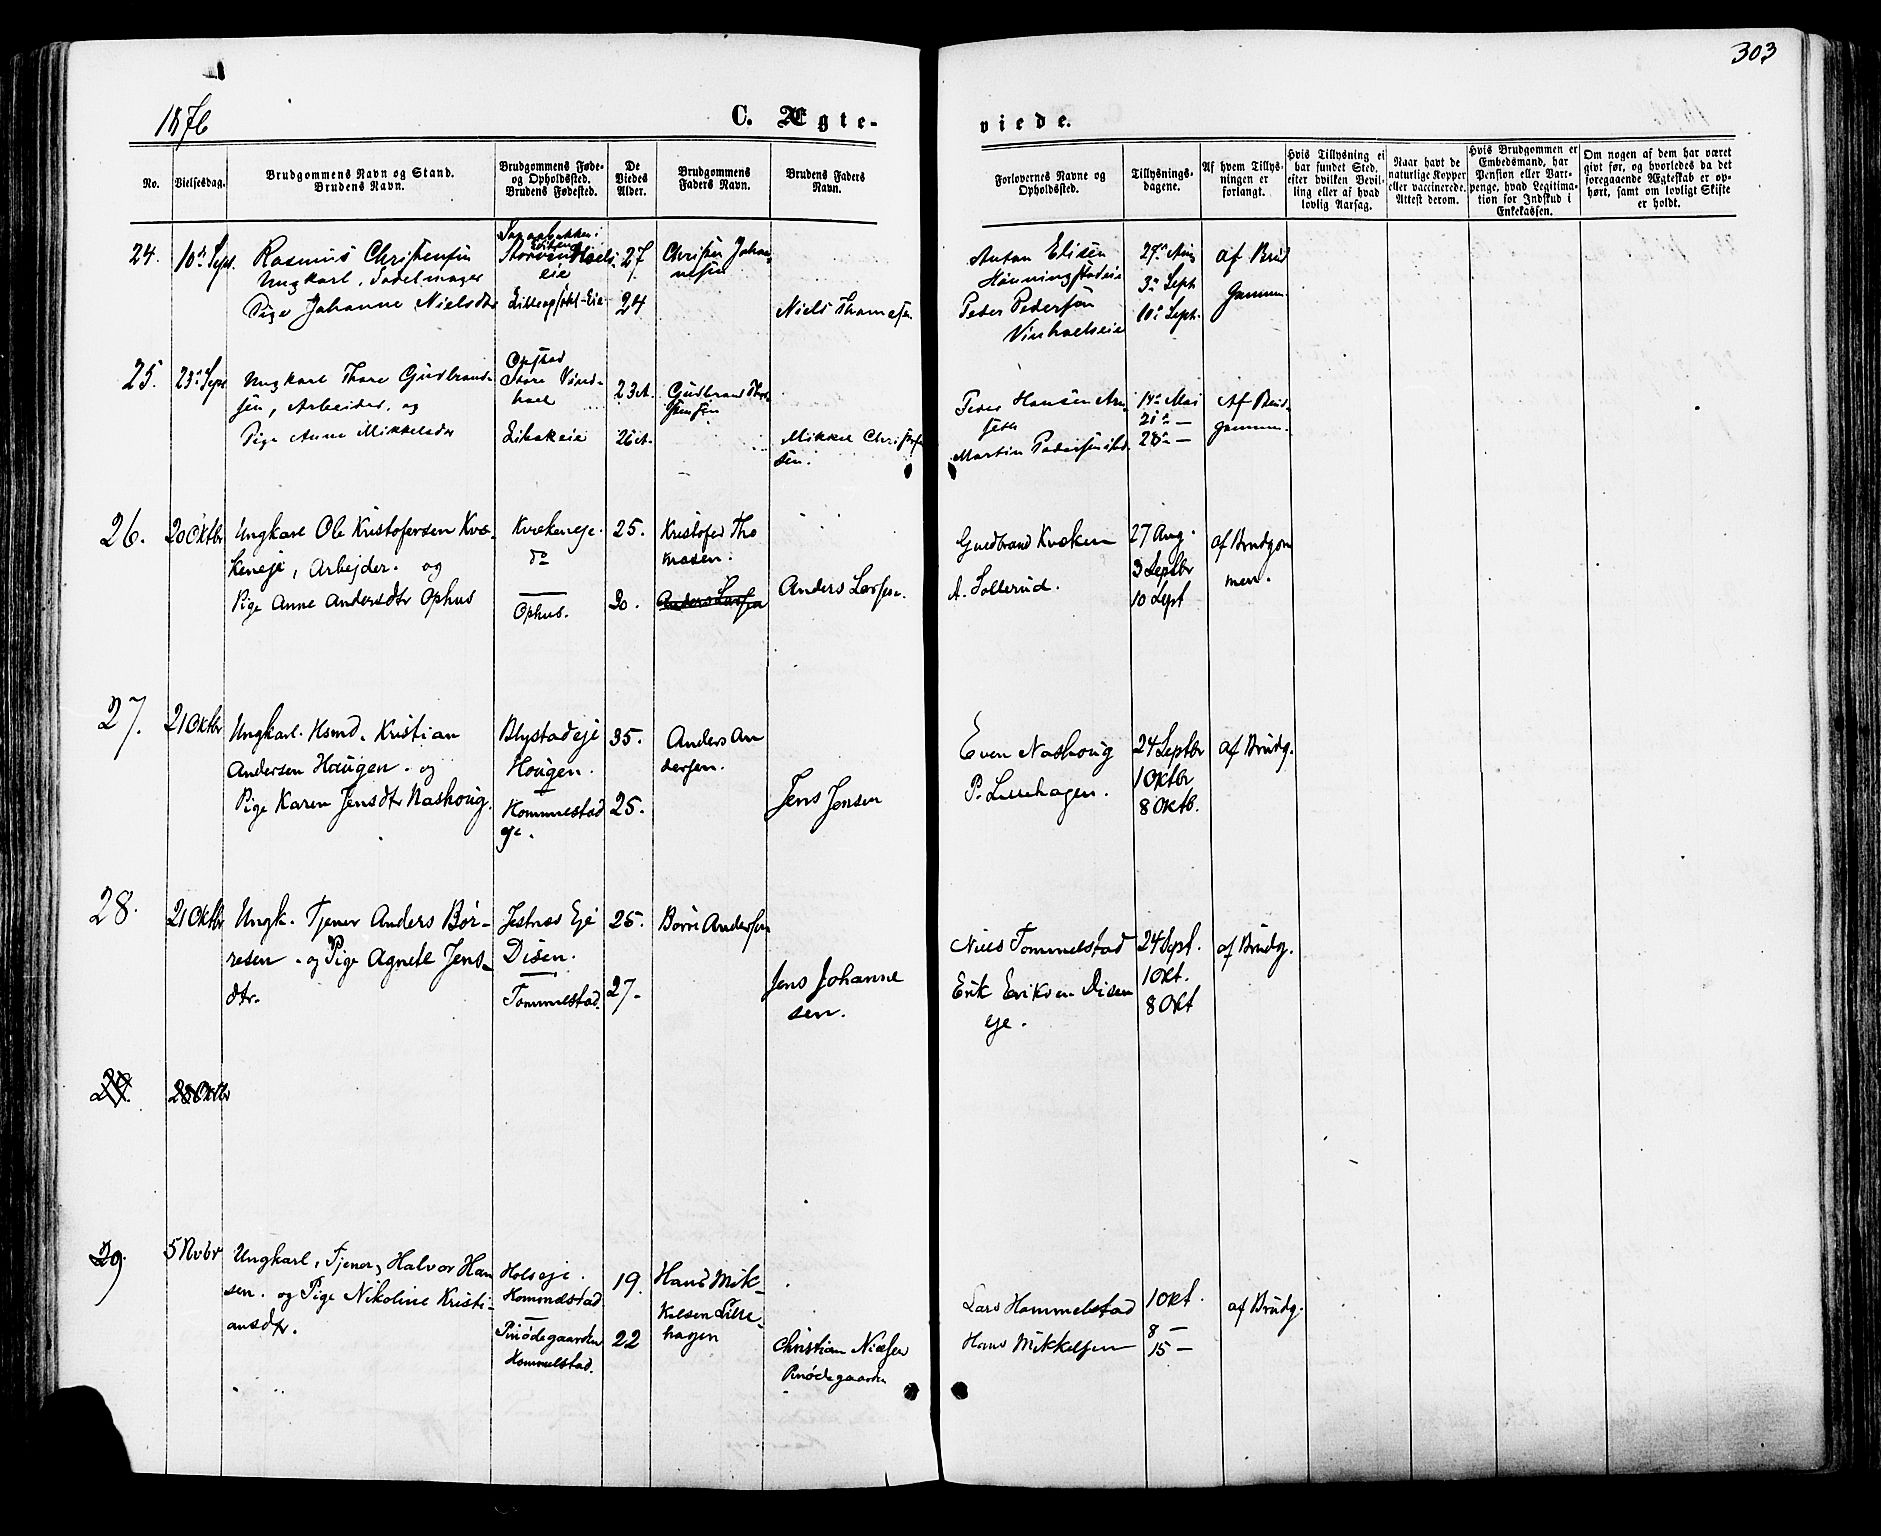 303
1876
C. Ægte-
viede.
No.
Vielsesdag.
Brudgommens Navn og Stand.
Brudens Navn.
Brudgommens Føde-
og Opholdssted.
Brudens Fødested.
De
Viedes
Alder.
Brudgommens
Faders Navn.
Brudens Faders
Navn.
Forlovernes Navne og
Opholdssted.
Tillysnings-
dagene.
Af hvem Tillys-
ningen er
forlangt.
Hvis Tillysning ei
har fundet Sted,
efter hvilken Bevil-
ling eller af hvad
lovlig Aarsag.
Naar havt de
naturlige Kopper
eller vaccinerede.
Attest derom.
Hvis Brudgommen er
Embedsmand, har
Pension eller Vart-
penge, hvad Legitima-
tion for Indskud i
Enkekassen.
Om nogen af dem har været
givt før, og hvorledes da det
foregaaende Ægteskab er op-
hørt, samt om lovligt Skifte
er holdt.
24.
10de Sept.
Rasmus Christensen
Ungkarl, Sadelmager
Pige Johanne Nielsdtr
eie
27
24
Christen Johan-
nesen
Niels Thomesen
Anton Elisen
Hønningstadeie
Peder Pedersøn
27de Aug
3de Sept
10de Sept.
af Brud
gommen
25.
23de Sept
Ungkarl Thore Gudbrand-
sen, Arbeider, og
Pige Anne Mikkelsdtr
Opstad
Store Vind-
hoel
23
26
Gudbrand Thor
stensen
Mikkel Christof
sen.
Peder Hansen
Martin
14de Mai
21de —
28de —
Af Brud-
gommen
26.
20 Oktbr
Ungkarl Ole Kristofersen Kvæ-
keneje, Arbejder. og
Pige Anne Andersdtr Ophus
Kvækeneje.
do
Ophus.
25.
20.
Kristofer Tho
masen.
Anders Larsen
Anders Larsen.
Gudbrand Kvæken
A. Sollerud.
27 Aug.
3 Septbr
10 Sept
af Brudgom
men.
27.
21 Oktbr
Ungkarl. Hsmd. Kristian
Andersen Haugen. og
Pige Karen Jensdtr Nashoug.
Blystadeje
Hougen.
Hommelstad
eje.
35.
25.
Anders An
dersen.
Jens Jensen
Even Nashoug
P. Lillehagen.
24 Septbr
1 Oktbr
8 Oktb.
af Brudg.
28.
21 Oktbr
Ungk. Tjener Anders Bør-
resen. og Pige Agnete Jens-
dtr.
Jestnes Eje
Disen.
Tommelstad.
25.
27.
Børre Andersen
Jens Johanne
sen.
Niels Tommelstad
Erik Eriksen Disen
eje.
24 Sept.
1 Okt.
8 Okt
af Brudg.
29.
28 Oktbr
29.
5 Nvbr
Ungkarl, Tjener, Halvor Han
sen. og Pige Nikoline Kristi-
ansdtr.
Holseje.
Hommelstad
Prødegaarden
Hommelstad.
19.
22
Hans Mik-
kelsen Lille-
hagen
Christian Nielsen
Prødegaarden
Lars Hommelstad
Hans Mikkelsen
1 Okt.
8 —
15 —
af Brudg.